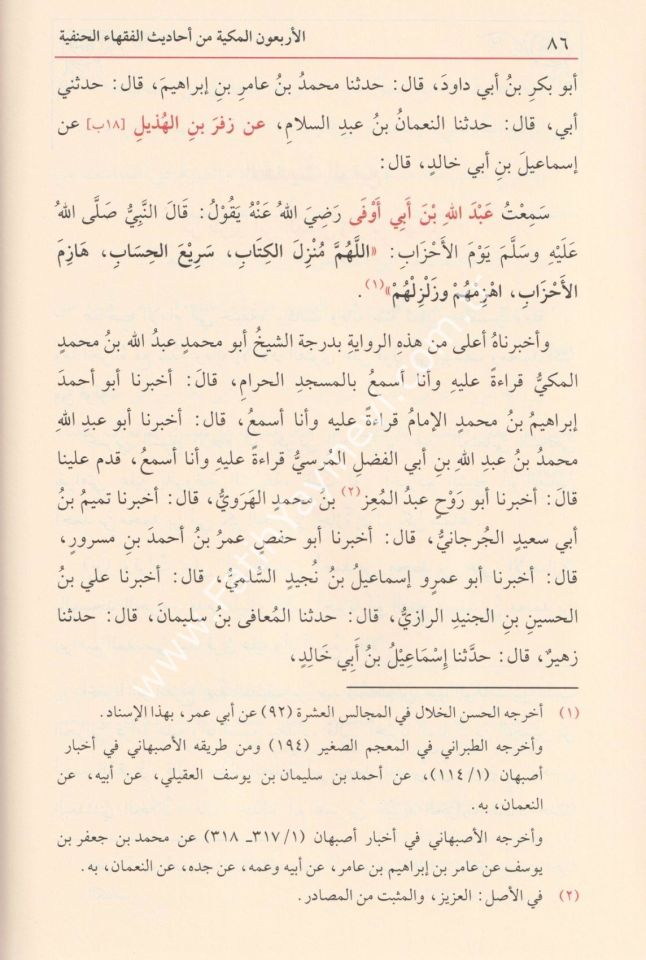 ٨٦
الأربعون المكية من أحاديث الفقهاء الحنفية
أبو بكرِ بنُ أبي داودَ، قال: حدثنا محمدُ بنُ عامرِ بنِ إبراهيمَ، قال: حدثني
أبي، قال: حدثنا النعمانُ بنُ عبدِ السلامِ، عن زفرَ بنِ الهُذيلِ [١٨ب] عن
إسماعيلَ بنِ أبي خالدٍ، قال:
سَمِعْتُ عَبْدَ اللهِ بْنَ أَبِي أَوْفَى رَضِيَ اللهُ عَنْهُ يَقُولُ: قَالَ النَّبِيُّ صَلَّى اللهُ
عَلَيْهِ وسَلَّمَ يَوْمَ الأَحْزَابِ: «اللَّهُمَّ مُنْزِلَ الكِتَابِ، سَرِيْعَ الحِسَابِ، هَازِمَ
الأَحْزَابِ، اهْزِمْهُمْ وزَلْزِلْهُمْ»(١).
وأخبرناهُ أعلى من هذهِ الروايةِ بدرجة الشيخُ أبو محمدٍ عبدُ الله بنُ محمدٍ
المكيُّ قراءةً عليهِ وأنا أسمعُ بالمسجدِ الحرامِ، قالَ: أخبرنا أبو أحمدَ
إبراهيمُ بنُ محمدٍ الإمامُ قراءةً عليه وأنا أسمعُ، قال: أخبرنا أبو عبدِ اللهِ
محمدُ بنُ عبدِ اللهِ بنِ أبي الفضلِ المُرسيُّ قراءةً عليهِ وأنا أسمعُ، قدم علينا
قالَ: أخبرنا أبو رَوْحٍ عبدُ المُعِز(٢) بنُ محمدٍ الهَرَويُّ، قال: أخبرنا تميمُ بنُ
أبي سعيدٍ الجُرجانيُّ، قال: أخبرنا أبو حفصٍ عمرُ بنُ أحمدَ بنِ مسرورٍ،
قال: أخبرنا أبو عمرٍو إسماعيلُ بنُ نُجيدٍ السُّلميُّ، قال: أخبرنا علي بنُ
الحسينِ بنِ الجنيدِ الرازيُّ، قال: حدثنا المُعافى بنُ سليمانَ، قال: حدثنا
زهيرٌ، قال: حدَّثنا إِسْمَاعِيْلُ بنُ أَبِي خَالِدٍ،
(١) أخرجه الحسن الخلال في المجالس العشرة (٩٢) عن أبي عمر، بهذا الإسناد.
وأخرجه الطبراني في المعجم الصغير (١٩٤) ومن طريقه الأصبهاني في أخبار
أصبهان (١/ ١١٤)، عن أحمد بن سليمان بن يوسف العقيلي، عن أبيه، عن
النعمان، به.
وأخرجه الأصبهاني في أخبار أصبهان (١/ ٣١٧ـ ٣١٨) عن محمد بن جعفر بن
يوسف عن عامر بن إبراهيم بن عامر، عن أبيه وعمه، عن جده، عن النعمان، به.
(٢) في الأصل: العزيز، والمثبت من المصادر.